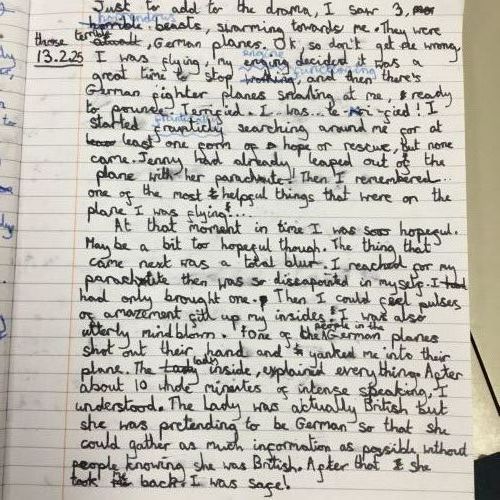 Just to add to the drama, I saw 3,
horrendous
horrible beasts, swarming towards me. They were
those terrible
German planes. so don't get me wrong,
13.2.25
I was flying, my engine decided it was a
engine
great time to stop working, and then there's
functioning
German fighter planes snarling at me, ready
to pounce. Terrified. I was... te-rri-fied! I
started frantically searching around me for at
least one form of hope or rescue, but none
came. Jenny had already leaped out of the
plane with her parachute! Then I remembered...
one of the most helpful things that were on the
plane I was flying...
At that moment in time I was so hopeful.
May be a bit too hopeful though. The thing that
came next was a total blur. I reached for my
parachute then was so dissapointed in myself. I
had only brought one. Then I could feel pulses
of amazement fill up my insides. I was also
utterly mindblown. one of the German planes
people in the
shot out their hand and yanked me into their
plane. The Lady inside, explained everything. After
lady
about 10 whole minutes of intense speaking, I
understood. The Lady was actually British but
she was pretending to be German so that she
could gather as much information as possibly without
people knowing she was British. After that she
took me back. I was safe!